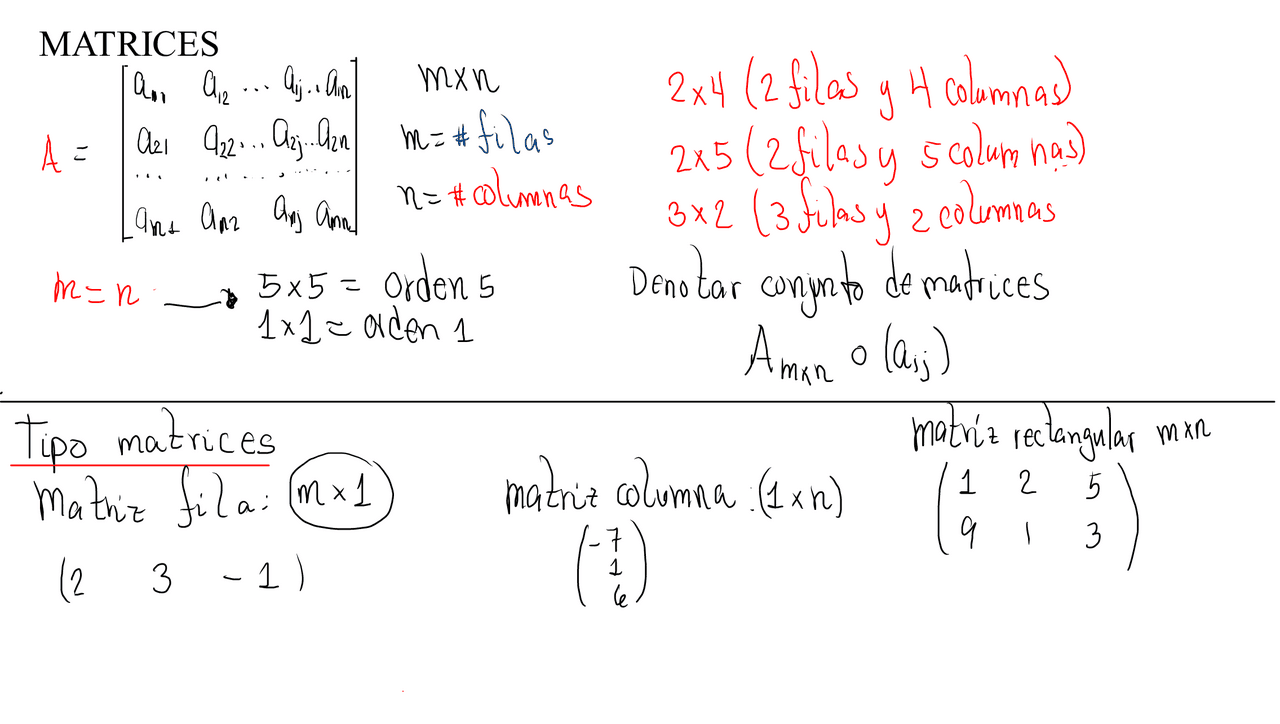 MATRICES
A = [a₁₁ a₁₂ ... aᵢⱼ ... a₁ₙ
a₂₁ a₂₂ ... a₂ⱼ ... a₂ₙ
... ... ... ...
aₘ₁ aₙ₂ aₙⱼ aₘₙ]
m×n
m = # filas
n = # columnas
2×4 (2 filas y 4 columnas)
2×5 (2 filas y 5 columnas)
3×2 (3 filas y 2 columnas
m = n → 5×5 = orden 5
1×1 = orden 1
Denotar conjunto de matrices
Aₘₓₙ o (aᵢⱼ)
Tipo matrices
Matriz fila: m×1
(2 3 -1)
matriz columna: (1×n)
(-7
1
6)
matriz rectangular m×n
(1 2 5
9 1 3)